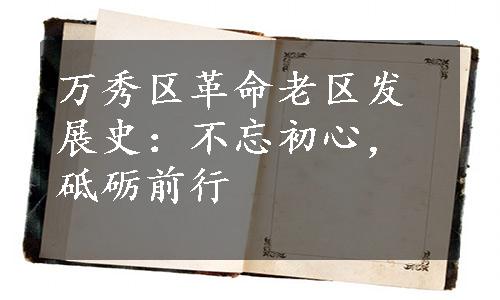 万秀区革命老区发
展史：不忘初心，
砥砺前行